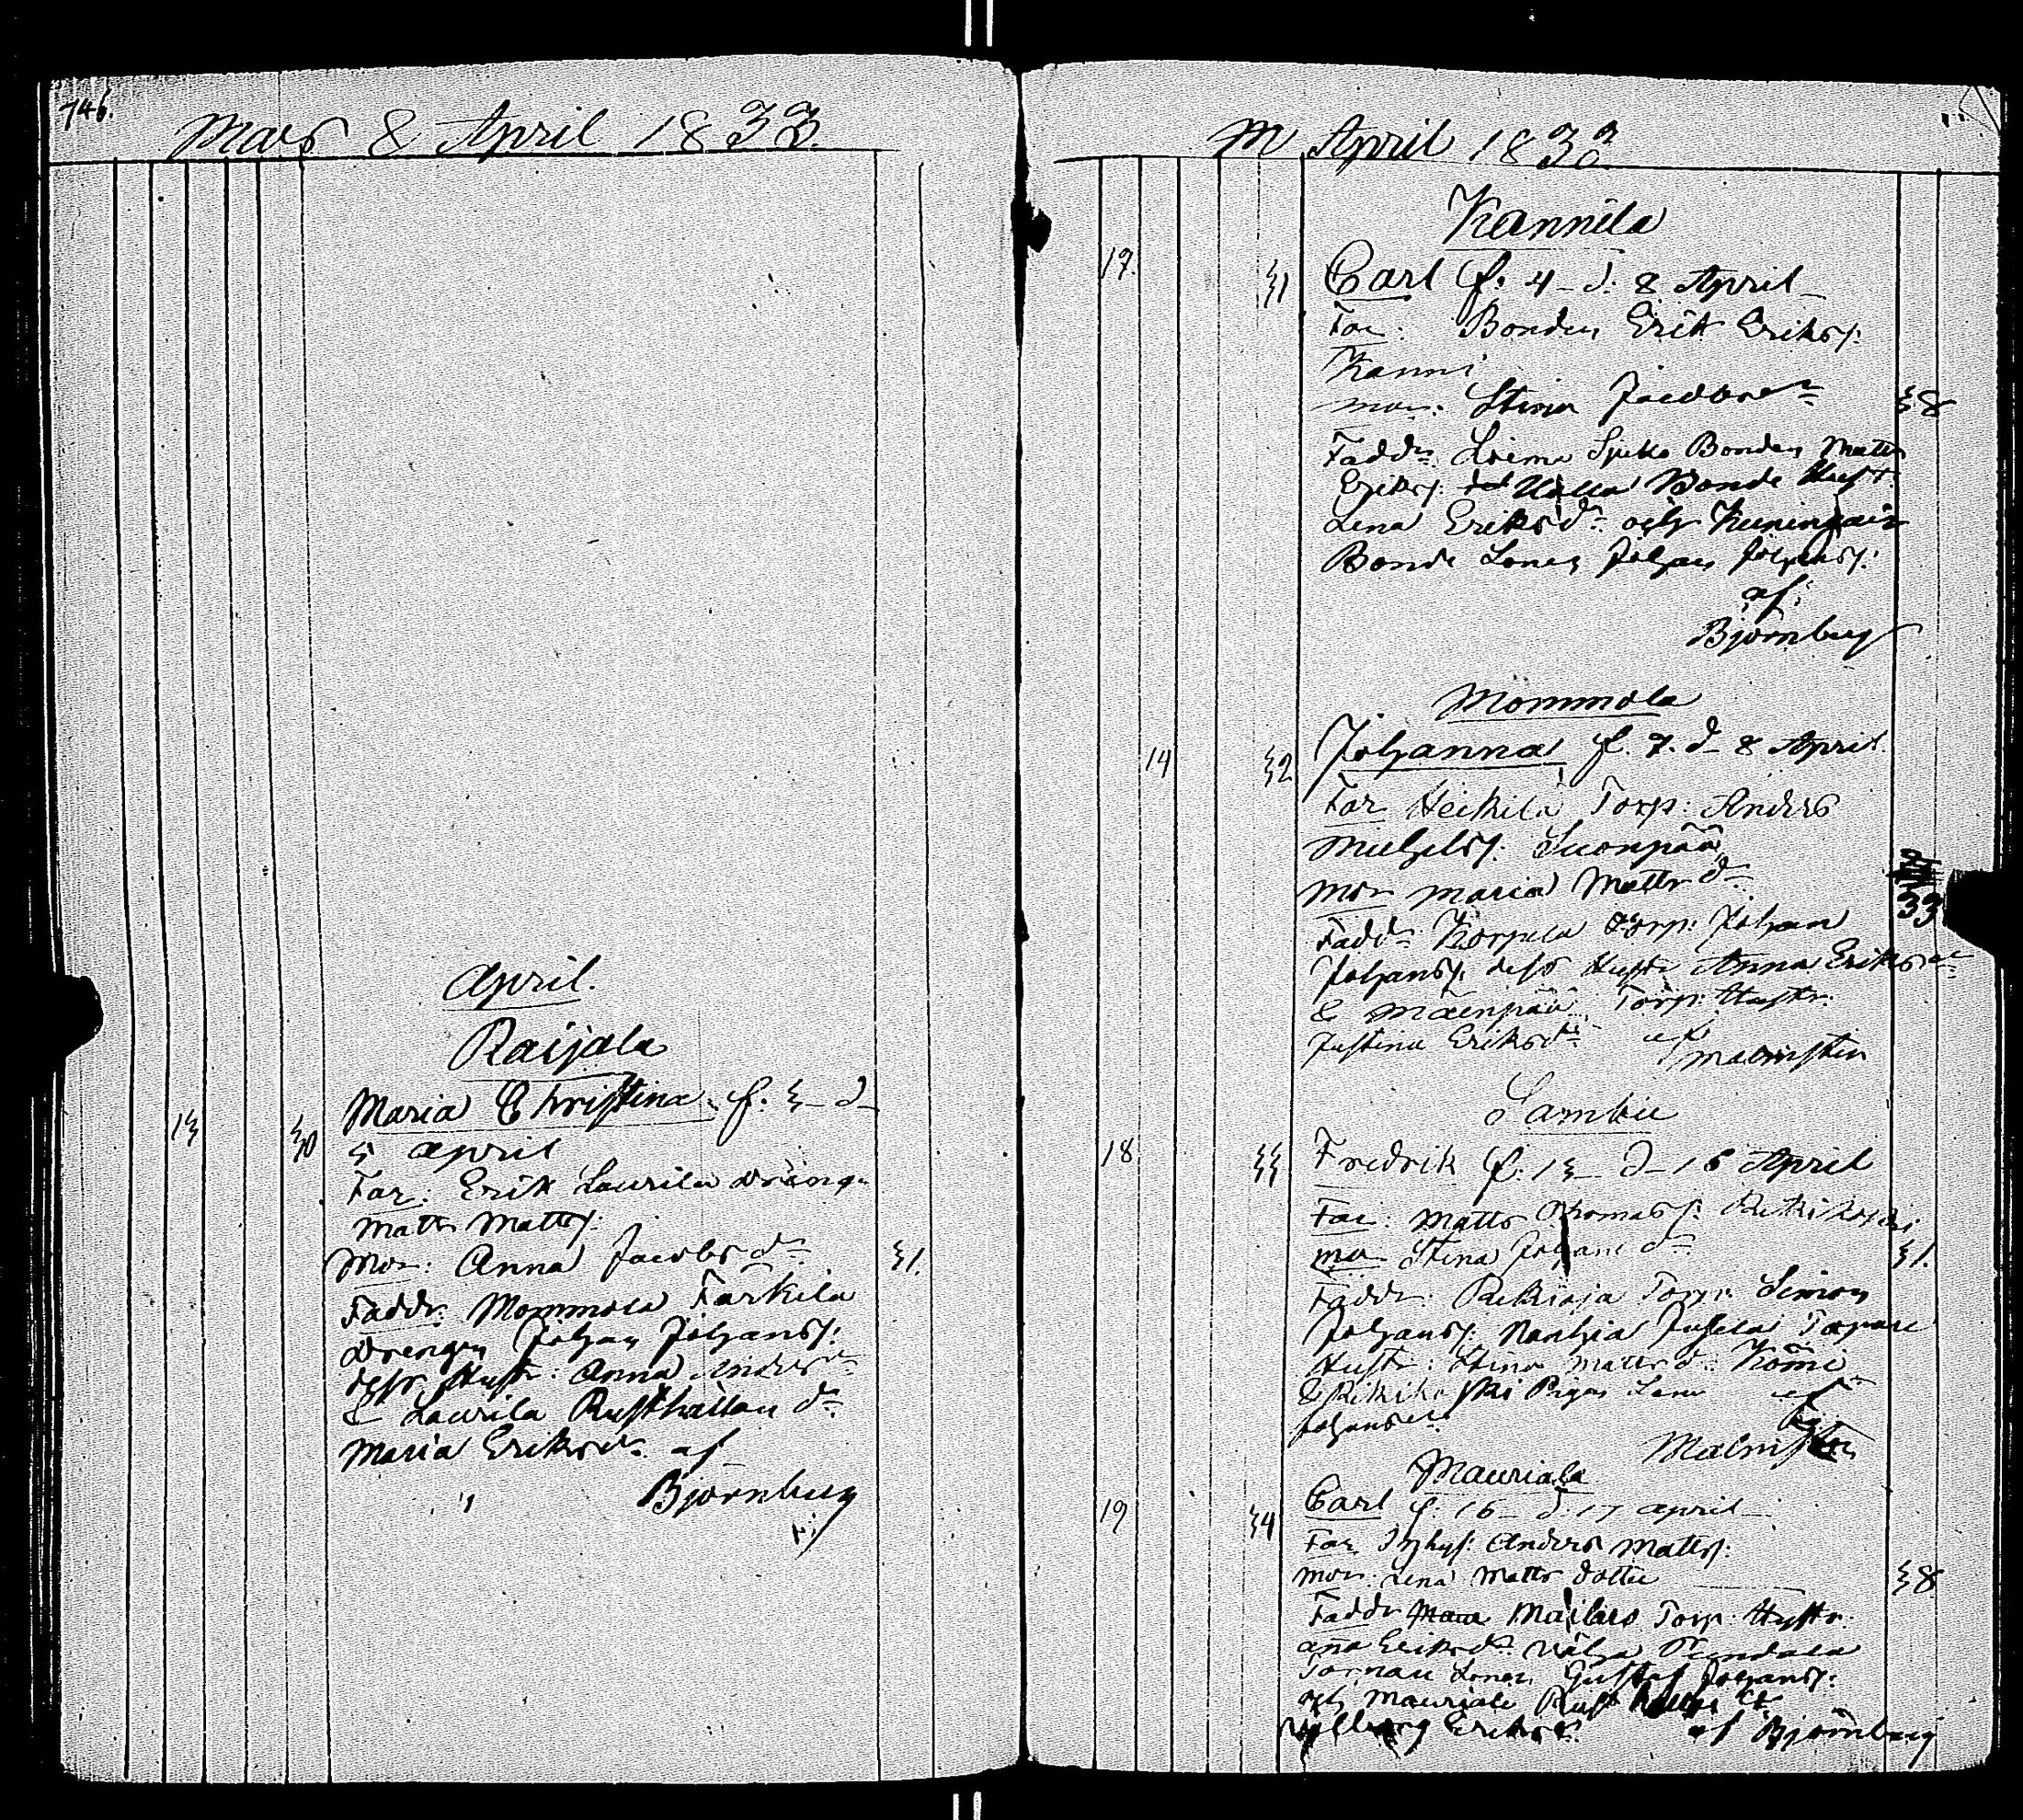 746.
Mars & April 1833.
April.
Raijala
Maria Christina f. 3 - d
13 30 5 April
Far: Erik Laurila Drängn
Matts Mattss:
Mor: Anna Jacobs dr 31.
Faddr: Mommola Farkila
Drengen Johan Johanss:
dess Hustr: Anna Andersdr
& Laurila Rusthållau dr
Maria Eriksdr af
Björnberg
M April 1833
Kannila
17. 31 Carl f. 4 - d. 8 April
Far: Bonden Erik Erikss:
Kanni
Mor: Stina Jacobsdr 38
Faddr: Loima Bonden Matts
Erikss: Ulla Bonde Hustr:
Lena Eriksdr och Kuningais
Bonde Sonen Johan Johanss:
af
Björnberg
Mommola
14 32 Johanna f. 7. d 8 April
Far Heikilä Torp: Anders
Michelss: Suonpää
Mor Maria Matts dr
33
Faddr Korpela Torp: Johan
Johanss: dess Hustr Anna Eriksdr
& Mäenpää Torp: Hustr:
Justina Eriksdr af
Malmsten
Sambu
18 33 Fredrik f. 13 - d - 16 April
Far: Matts Thomass:
Mor Stina Johans dr 31.
Faddr: Torp: Simon
Johanss: Nanhia Jussila
Hustr: Stina Matts d: Kömi
& Pigan Lena af
Johansdr
Malmsten
Mauriala
19 34 Carl f. 16 - d. 17 April
Far Inhys: Anders Mattss:
Mor: Lena Matts dotter 38
Faddr Torp: Hustr:
Eriksdr
Sonen Gustaf Johanss:
och Mauriala
Eriksd: af Björnberg